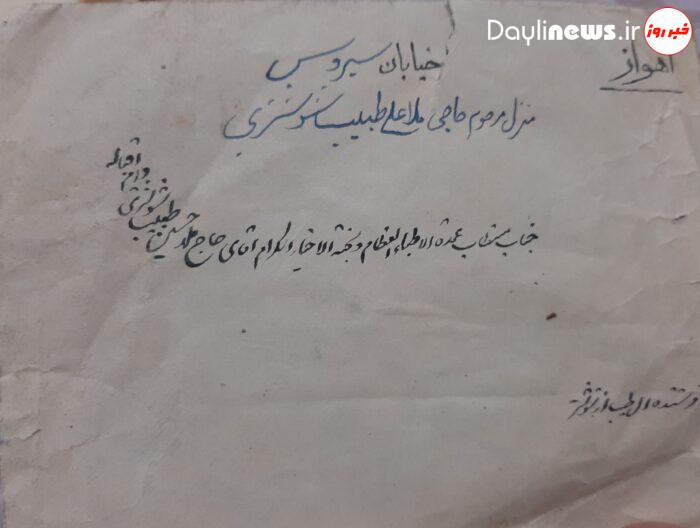 Daylinews.ir
خبر روز
اهواز
خیابان سیروس
منزل مرحوم حاجی ملا علی طبیب شوشتری
جناب مستطاب عمدة الاطباء العظام و نخبة الاخیار الکرام آقای حاج ملا حسین طبیب شوشتری دام اقباله
فرستنده از شوشتر